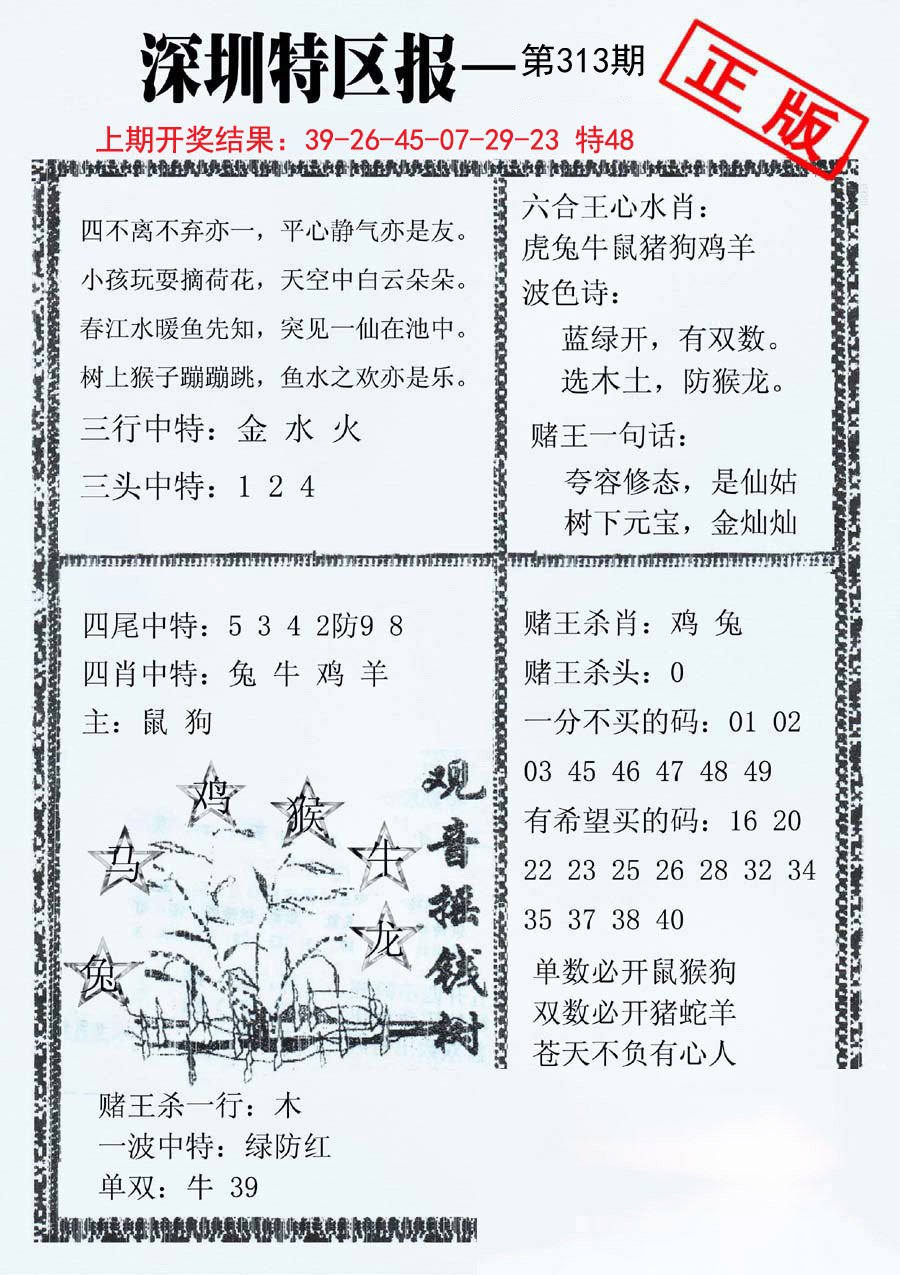 深圳特区报—第313期
正版
上期开奖结果：39-26-45-07-29-23 特48
四不离不弃亦一，平心静气亦是友。
小孩玩耍摘荷花，天空中白云朵朵。
春江水暖鱼先知，突见一仙在池中。
树上猴子蹦蹦跳，鱼水之欢亦是乐。
三行中特：金 水 火
三头中特：1 2 4
六合王心水肖：
虎兔牛鼠猪狗鸡羊
波色诗：
蓝绿开，有双数。
选木土，防猴龙。
赌王一句话：
夸容修态，是仙姑
树下元宝，金灿灿
四尾中特：5 3 4 2防9 8
四肖中特：兔 牛 鸡 羊
主：鼠 狗
鸡
猴
马
牛
龙
兔
观音摇钱树
赌王杀一行：木
一波中特：绿防红
单双：牛 39
赌王杀肖：鸡 兔
赌王杀头：0
一分不买的码：01 02
03 45 46 47 48 49
有希望买的码：16 20
22 23 25 26 28 32 34
35 37 38 40
单数必开鼠猴狗
双数必开猪蛇羊
苍天不负有心人